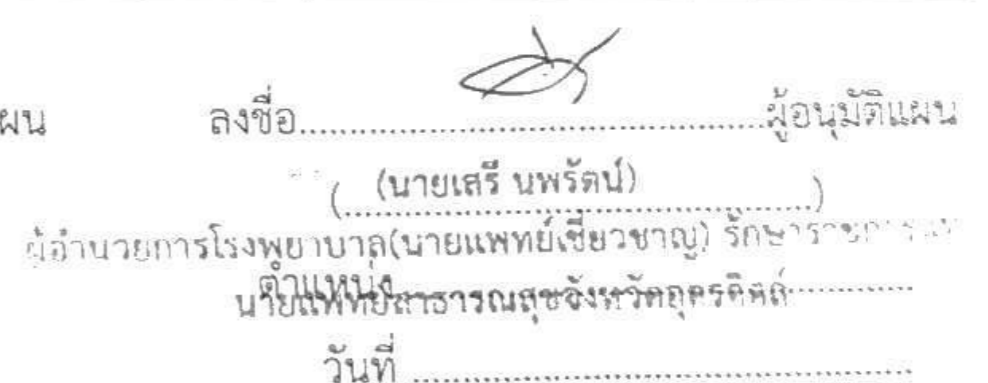 ผน ลงชื่อ....................................................ผู้อนุมัติแผน
(นายเสรี นพรัตน์)
(....................................................)
ผู้อำนวยการโรงพยาบาล(นายแพทย์เชี่ยวชาญ) รักษาราชการแทน
ตำแหน่ง....................................................
นายแพทย์สาธารณสุขจังหวัดอุตรดิตถ์
วันที่ ....................................................